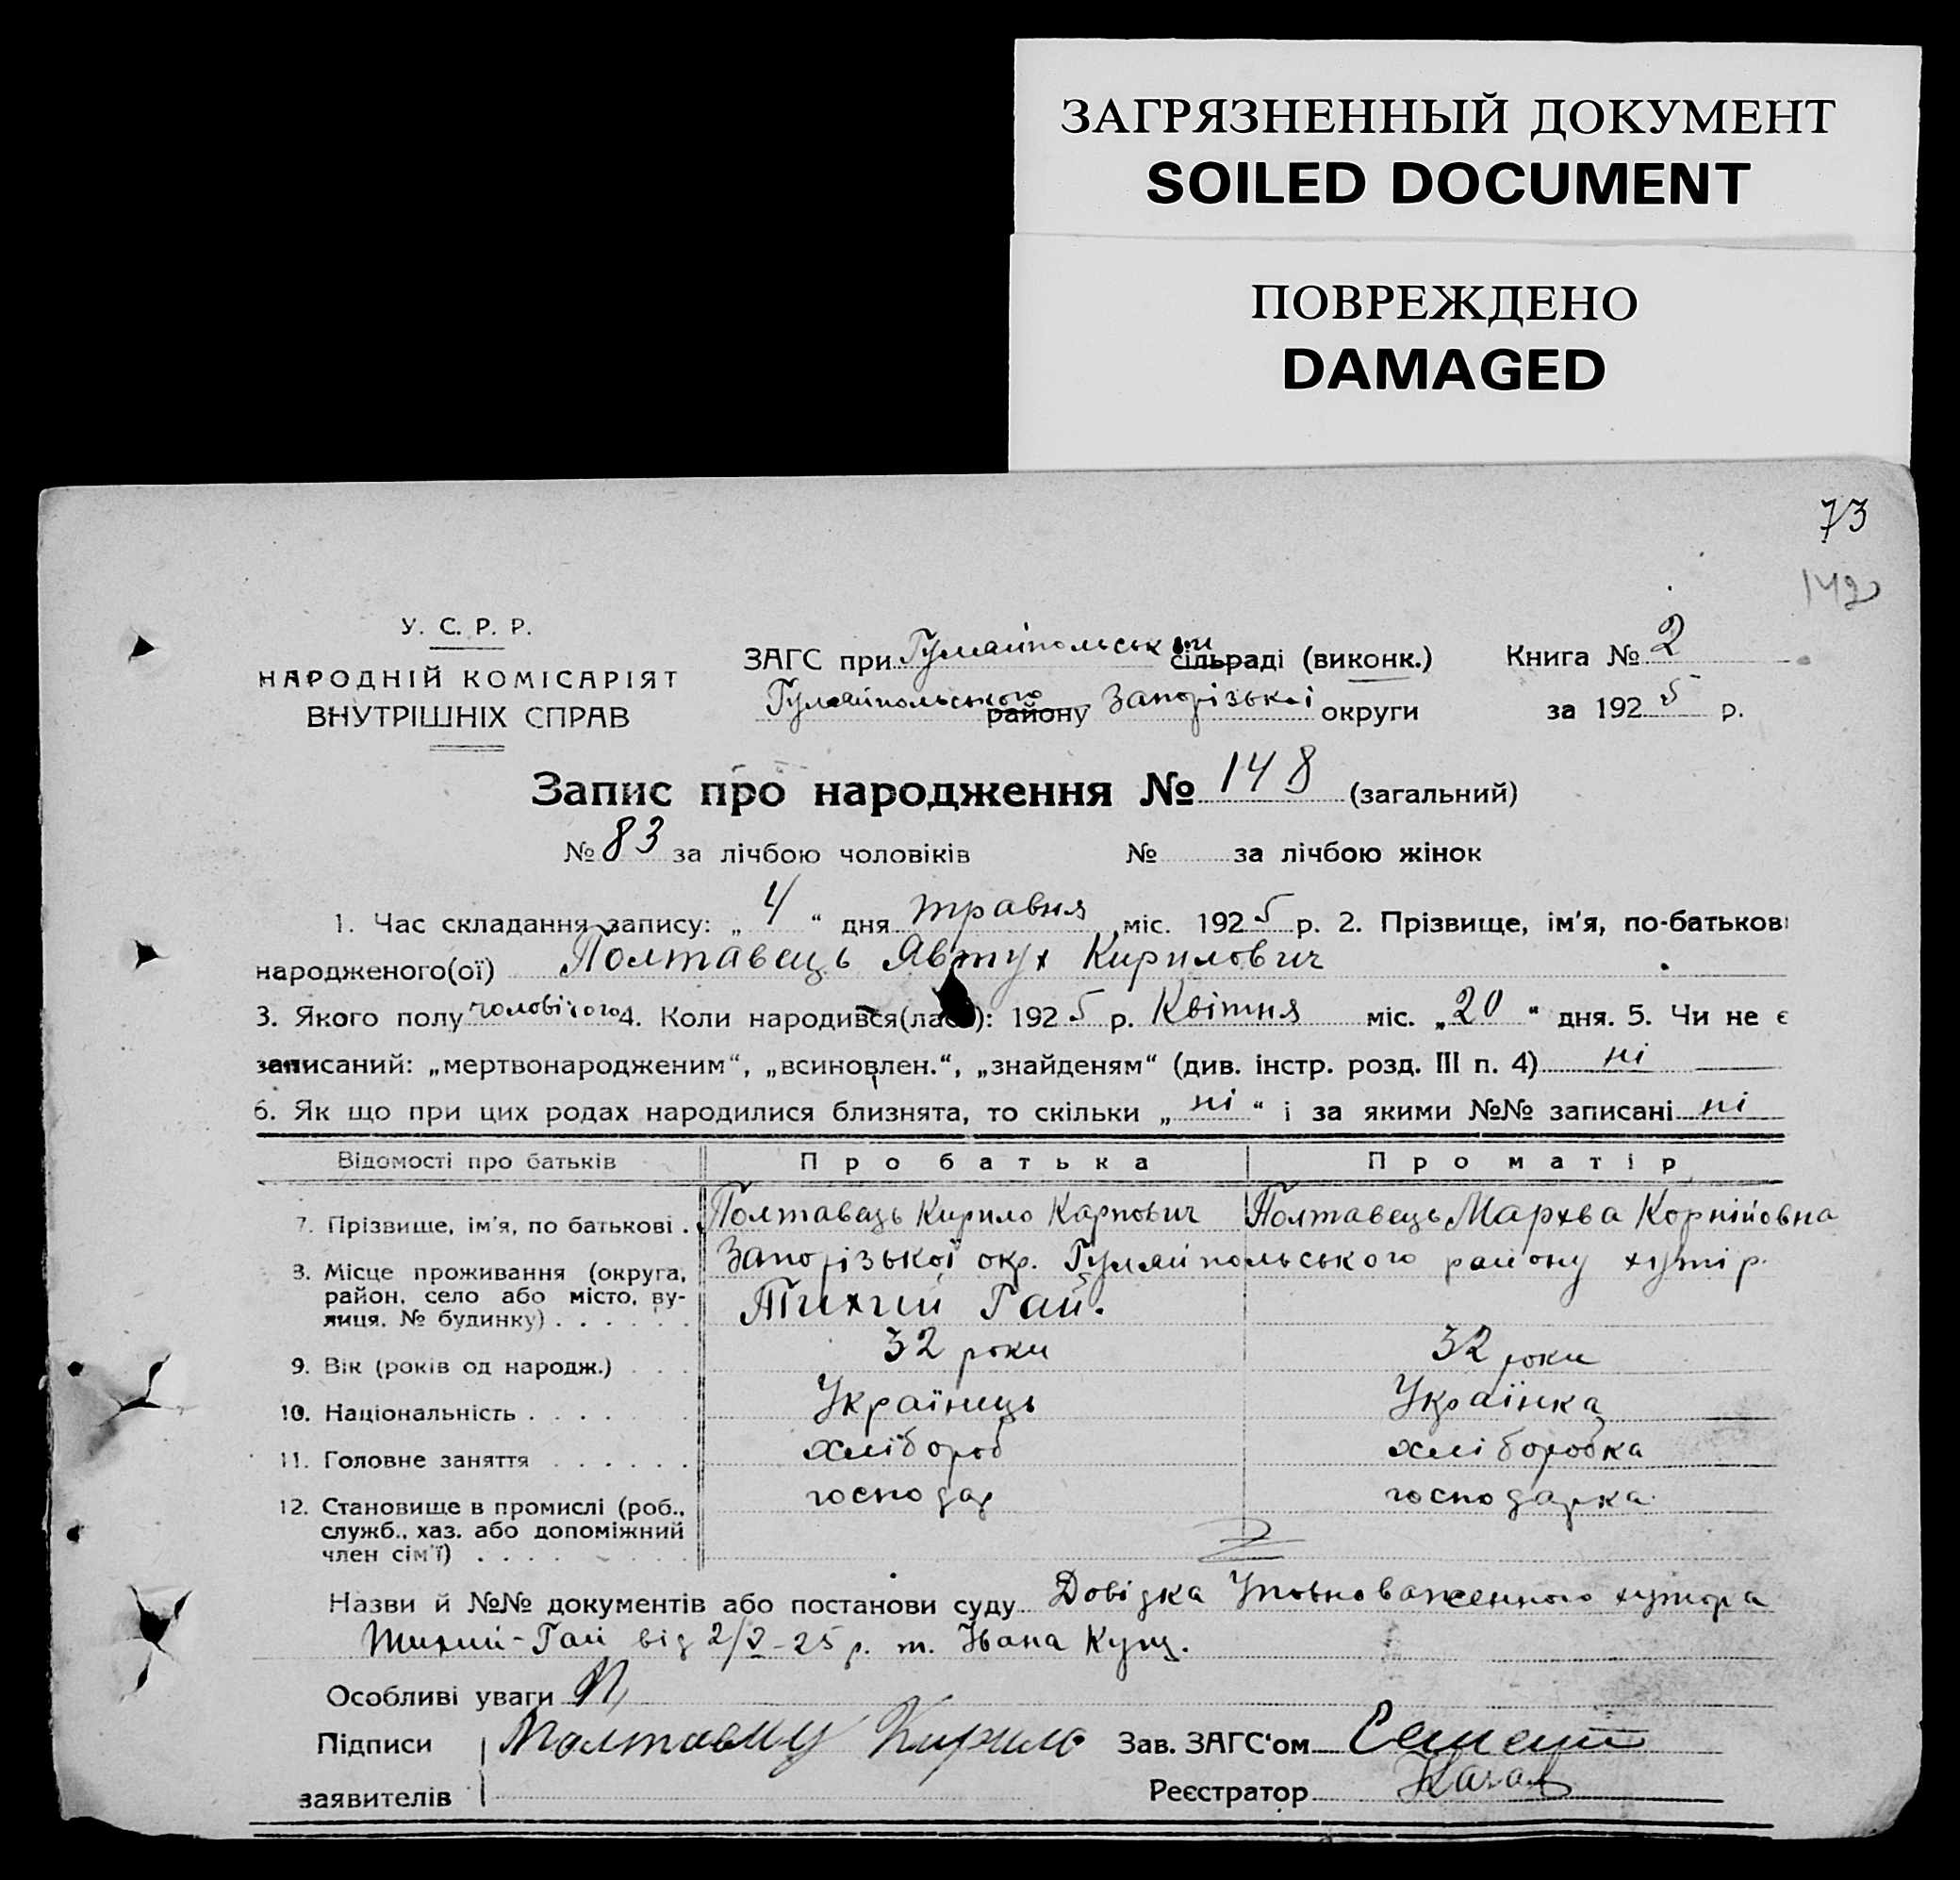 ЗАГРЯЗНЕННЫЙ ДОКУМЕНТ
SOILED DOCUMENT
ПОВРЕЖДЕНО
DAMAGED
73
142
У. С. Р. Р.
НАРОДНІЙ КОМІСАРІЯТ
ВНУТРІШНІХ СПРАВ
ЗАГС при Гуляйпольськїй сільраді (виконк.)
Гуляйпольського району Запорізької округи
Книга № 2
за 1925 р.
Запис про народження № 148 (загальний)
№ 83 за лічбою чоловіків № за лічбою жінок
1. Час складання запису: „ 4 “ дня травня міс. 1925 р. 2. Прізвище, ім'я, по-батькові
народженого(ої) Полтавець Явтух Кирилович
3. Якого полу чоловічого 4. Коли народився(лась): 1925 р. Квітня міс. „ 20 “ дня. 5. Чи не є
записаний: „мертвонародженим“, „всиновлен.“, „знайденям“ (див. інстр. розд. III п. 4) ні
6. Як що при цих родах народилися близнята, то скільки „ ні “ і за якими №№ записані ні
Відомості про батьків Про батька Про матір
7. Прізвище, ім'я, по батькові . Полтавець Кирило Карпович Полтавець Мархва Корнійовна
8. Місце проживання (округа, район, село або місто, ву-лиця, № будинку) . . . . . . Запорізької окр. Гуляйпольського району хутір
Тихий Гай.
9. Вік (років од народж.) . . . 32 роки 32 роки
10. Національність . . . . . . Українець Українка
11. Головне заняття . . . . . . хлібороб хліборобка
12. Становище в промислі (роб., служб., хаз. або допоміжний член сім'ї) . . . . господар господарка
Назви й №№ документів або постанови суду Довідка Уповноваженного хутора
Тихий-Гай від 2/V-25 р. т. Івана Кущ.
Особливі уваги
Підписи Кирило Зав. ЗАГС'ом
заявителів Реєстратор